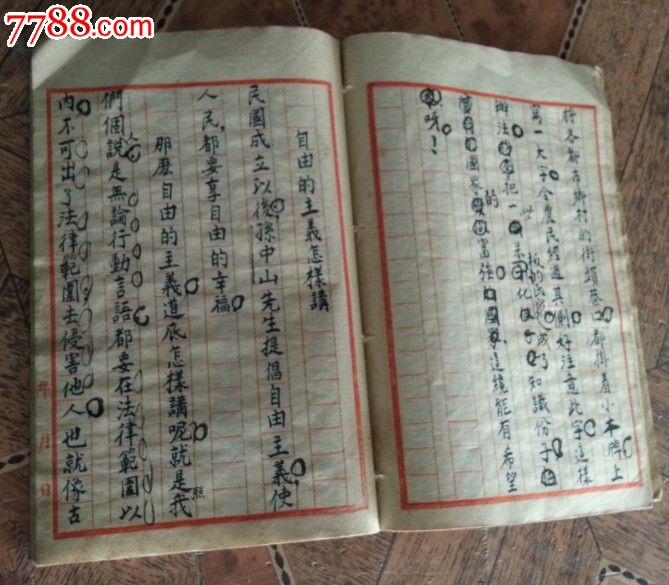 7788.com
将各都市鄉村的街頭巷口都掛着小木牌上
寫一大字令農民經過其側好注意此字這樣
辦法把一些未化板的民衆成了知識份子
國家的富強國家這纔能有希望
呀！
自由的主義怎樣講
民國成立以後孫中山先生提倡自由主義使
人民，都要享自由的幸福
那麼自由的主義道底怎樣講呢就是我
們個人說是無論行動言語都要在法律範圍以
内不可出了法律範圍去侵害他人也就像古
照
年月日